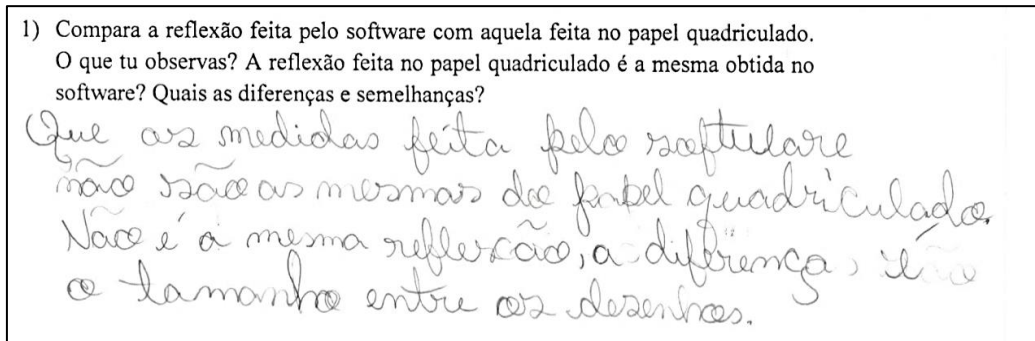 1) Compara a reflexão feita pelo software com aquela feita no papel quadriculado.
O que tu observas? A reflexão feita no papel quadriculado é a mesma obtida no
software? Quais as diferenças e semelhanças?
Que as medidas feita pelo softulare
não são as mesmas do papel quadriculado.
Não é a mesma reflexcão, a difrença,
o tamanho entre os desenhos.